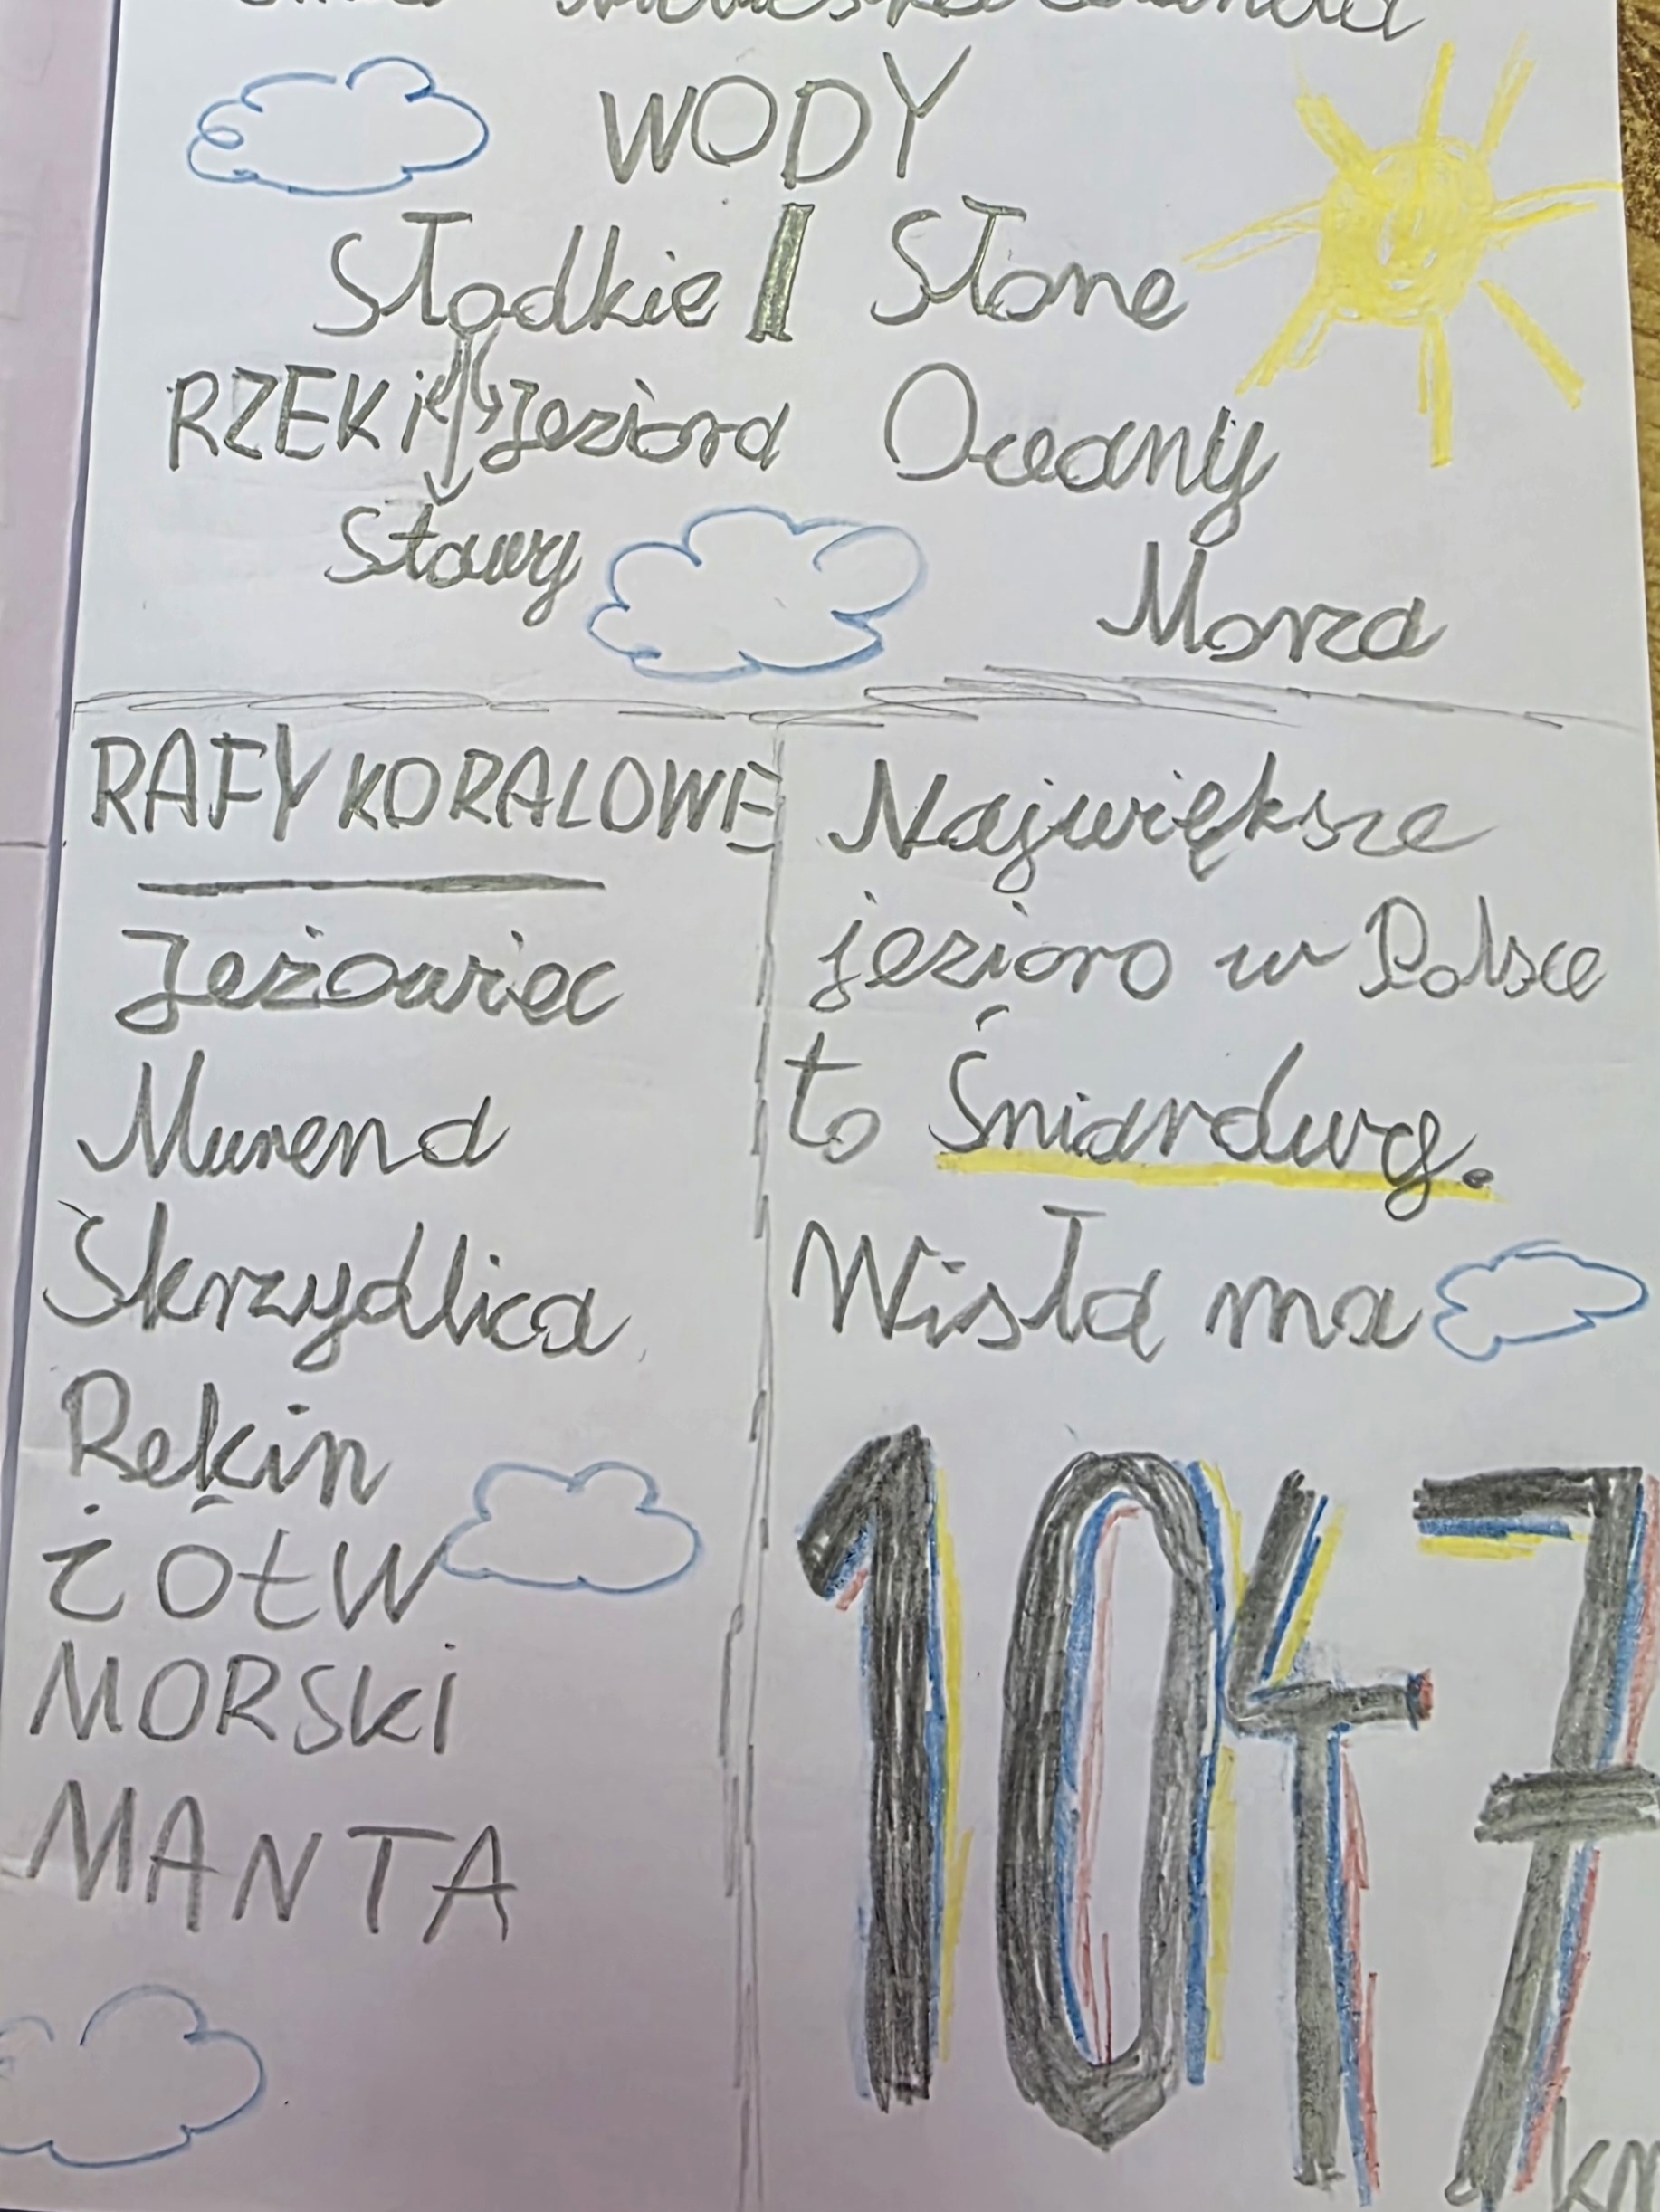 WODY
Słodkie | Słone
RZEKi Jeziora Oceany
Stawy
Morza
RAFY KORALOWE
Jeżowiec
Murena
Skrzydlica
Rekin
ŻÓŁW
MORSKi
MANTA
Największe
jezioro w Polsce
to Śniardwy.
Wisła ma
1047
km